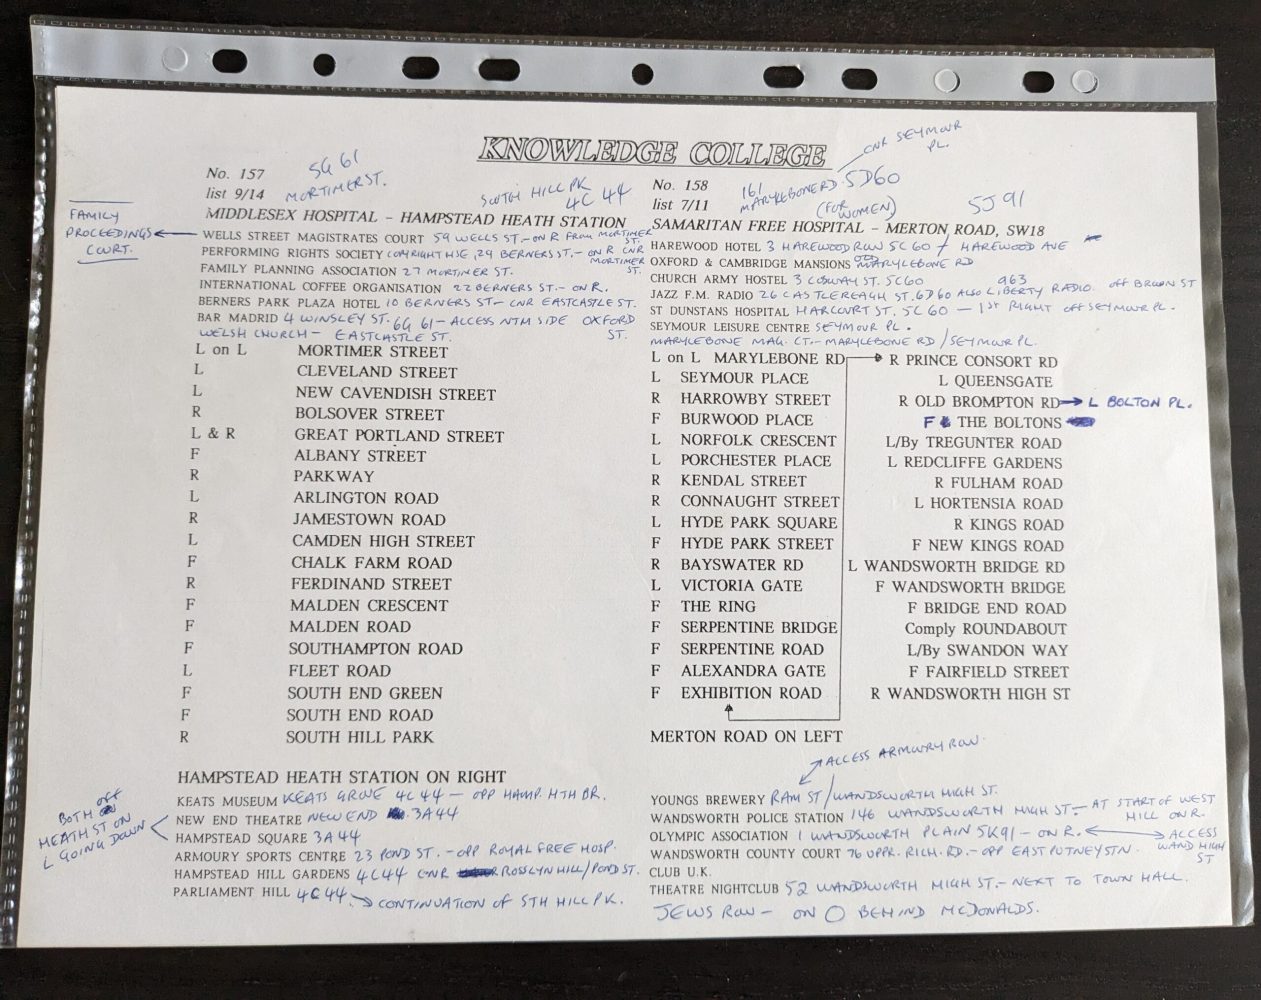 KNOWLEDGE COLLEGE
No. 157
list 9/14
5G 61
MORTIMER ST.
SOUTH HILL PK
4C 44
MIDDLESEX HOSPITAL - HAMPSTEAD HEATH STATION
FAMILY
PROCEEDINGS
COURT.
WELLS STREET MAGISTRATES COURT 59 WELLS ST. - ON R FROM MORTIMER ST.
PERFORMING RIGHTS SOCIETY COPYRIGHT HSE, 29 BERNERS ST. - ON R CNR MORTIMER ST.
FAMILY PLANNING ASSOCIATION 27 MORTIMER ST.
INTERNATIONAL COFFEE ORGANISATION 22 BERNERS ST. - ON R.
BERNERS PARK PLAZA HOTEL 10 BERNERS ST - CNR EASTCASTLE ST.
BAR MADRID 4 WINSLEY ST. 6G 61 - ACCESS NTM SIDE OXFORD ST.
WELSH CHURCH - EASTCASTLE ST.
L on L MORTIMER STREET
L CLEVELAND STREET
L NEW CAVENDISH STREET
R BOLSOVER STREET
L & R GREAT PORTLAND STREET
F ALBANY STREET
R PARKWAY
L ARLINGTON ROAD
R JAMESTOWN ROAD
L CAMDEN HIGH STREET
F CHALK FARM ROAD
R FERDINAND STREET
F MALDEN CRESCENT
F MALDEN ROAD
F SOUTHAMPTON ROAD
L FLEET ROAD
F SOUTH END GREEN
F SOUTH END ROAD
R SOUTH HILL PARK
HAMPSTEAD HEATH STATION ON RIGHT
KEATS MUSEUM KEATS GROVE 4C 44 - OPP HAMP. HTH BR.
NEW END THEATRE NEW END 3A 44
HAMPSTEAD SQUARE 3A 44
BOTH off
HEATH ST ON
L GOING DOWN
ARMOURY SPORTS CENTRE 23 POND ST. - OPP ROYAL FREE HOSP.
HAMPSTEAD HILL GARDENS 4C 44 CNR ROSSLYN HILL/POND ST.
PARLIAMENT HILL 4C 44. → CONTINUATION OF STH HILL PK.
No. 158
list 7/11
161
MARYLEBONE RD. 5D60
CNR SEYMOUR PL.
(FOR WOMEN)
5J 91
SAMARITAN FREE HOSPITAL - MERTON ROAD, SW18
HAREWOOD HOTEL 3 HAREWOOD ROW 5C 60 / HAREWOOD AVE
OXFORD & CAMBRIDGE MANSIONS OLD MARYLEBONE RD
CHURCH ARMY HOSTEL 3 COSWAY ST. 5C60
JAZZ F.M. RADIO 26 CASTLEREAGH ST. 6D60 ALSO LIBERTY RADIO 963 off BROWN ST
ST DUNSTANS HOSPITAL HARCOURT ST. 5C 60 - 1ST RIGHT off SEYMOUR PL.
SEYMOUR LEISURE CENTRE SEYMOUR PL.
MARYLEBONE MAG. CT. - MARYLEBONE RD / SEYMOUR PL.
L on L MARYLEBONE RD
L SEYMOUR PLACE
R HARROWBY STREET
F BURWOOD PLACE
L NORFOLK CRESCENT
L PORCHESTER PLACE
R KENDAL STREET
R CONNAUGHT STREET
L HYDE PARK SQUARE
F HYDE PARK STREET
R BAYSWATER RD
L VICTORIA GATE
F THE RING
F SERPENTINE BRIDGE
F SERPENTINE ROAD
F ALEXANDRA GATE
F EXHIBITION ROAD
R PRINCE CONSORT RD
L QUEENSGATE
R OLD BROMPTON RD → L BOLTON PL.
F THE BOLTONS
L/By TREGUNTER ROAD
L REDCLIFFE GARDENS
R FULHAM ROAD
L HORTENSIA ROAD
R KINGS ROAD
F NEW KINGS ROAD
L WANDSWORTH BRIDGE RD
F WANDSWORTH BRIDGE
F BRIDGE END ROAD
Comply ROUNDABOUT
L/By SWANDON WAY
F FAIRFIELD STREET
R WANDSWORTH HIGH ST
MERTON ROAD ON LEFT
ACCESS ARMOURY ROW.
YOUNGS BREWERY RAM ST / WANDSWORTH HIGH ST.
WANDSWORTH POLICE STATION 146 WANDSWORTH HIGH ST. - AT START OF WEST HILL ON R.
OLYMPIC ASSOCIATION 1 WANDSWORTH PLAIN 5K91 - ON R. ↔ ACCESS WAND HIGH ST
WANDSWORTH COUNTY COURT 76 UPPR. RICH. RD. - OPP EAST PUTNEY STN.
CLUB U.K.
THEATRE NIGHTCLUB 52 WANDSWORTH HIGH ST. - NEXT TO TOWN HALL.
JEWS ROW - ON O BEHIND McDONALDS.